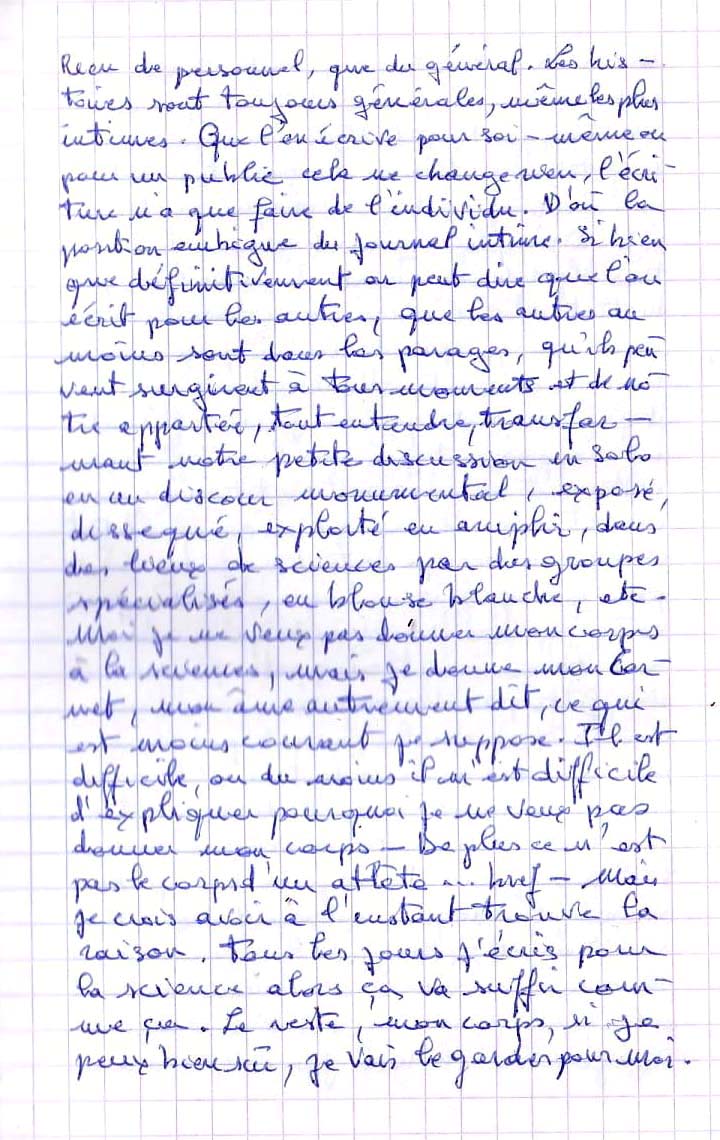 Rien de personnel, que du général. Les his-
toires sont toujours générales, même les plus
intimes. Que l'on écrive pour soi-même ou
pour un public cela ne change rien, l'écri-
ture n'a que faire de l'individu. D'où la
position ambigue du journal intime. Si bien
que définitivement on peut dire que l'on
écrit pour les autres, que les autres au
moins sont dans les parages, qu'ils peu
vent surgirent à tous moments et de nô
tre appartée, tout entendre, transfor-
mant notre petite discussion en solo
en un discour monumental, exposé,
dissequé, exploité en amphi, dans
des lieux de sciences par des groupes
spécialisés, en blouse blanche, etc.
Moi je ne veux pas donner mon corps
à la sciences, mais je donne mon Car-
net, mon âme autrement dit, ce qui
est moins courant je suppose. Il est
difficile, ou du moins il m'est difficile
d'expliquer pourquoi je ne veux pas
donner mon corps - De plus ce n'est
pas le corps d'un atlète ... bref - Mais
je crois avoir à l'instant trouvé la
raison. Tous les jours j'écris pour
la science alors ça va suffir com-
me ça. Le reste, mon corps, si je
peux bien sûr, je vais le garder pour moi.